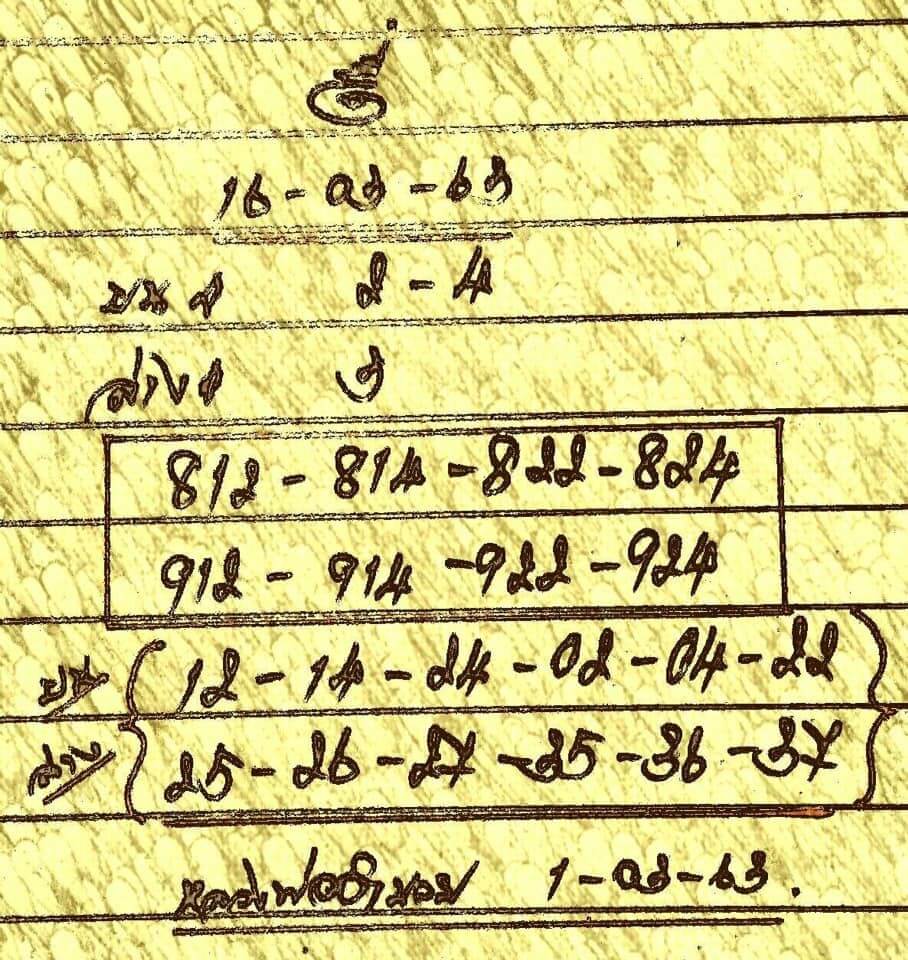 16-03-63
บน 2-4
ล่าง 3
812-814-822-824
912-914-922-924
บน 12-14-24-02-04-22
ล่าง 25-26-27-35-36-37
1-03-63.